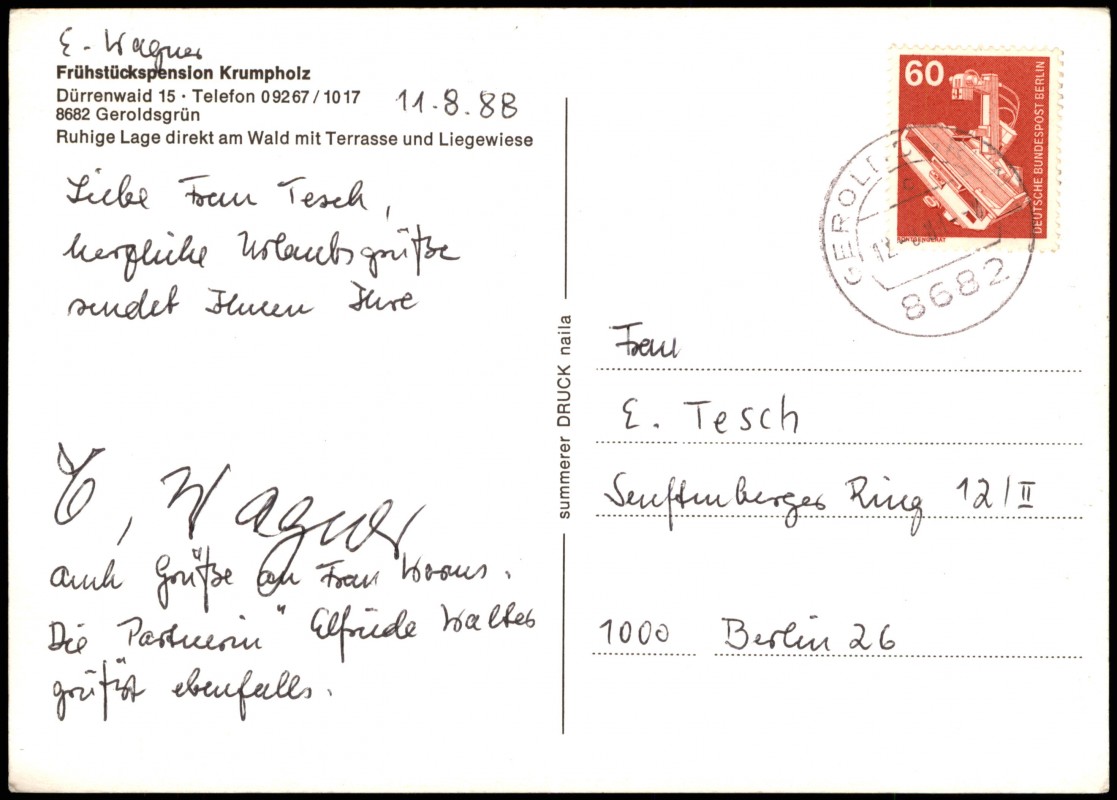 E. Wagner
Frühstückspension Krumpholz
Dürrenwaid 15 · Telefon 09267/1017
8682 Geroldsgrün
Ruhige Lage direkt am Wald mit Terrasse und Liegewiese
11.8.88
Liebe Frau Tesch,
herzliche Urlaubsgrüße
sendet Ihnen Ihre
E, Wagner
auch Grüße an Frau
Die "Partnerin" Elfriede Walter
grüßt ebenfalls.
summerer DRUCK naila
60
DEUTSCHE BUNDESPOST BERLIN
RÖNTGENGERÄT
GEROLDSGRÜN
12.
8682
Frau
E. Tesch
Senftenberger Ring 12/II
1000 Berlin 26